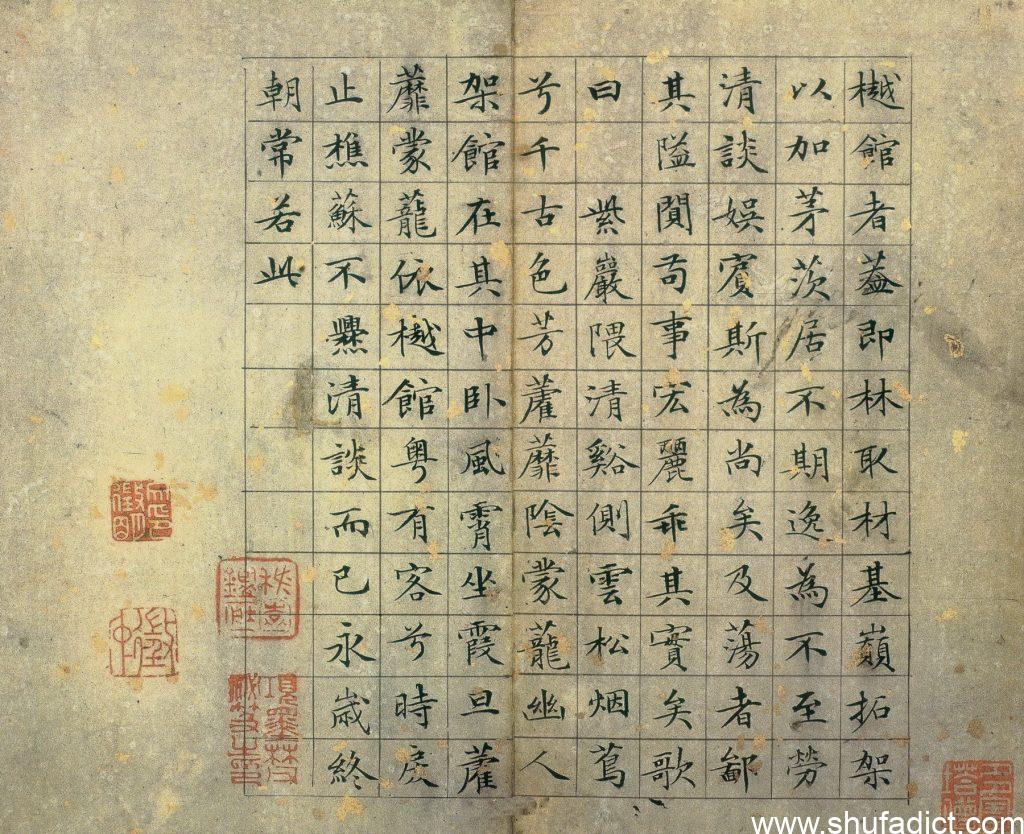 樾館者葢即林取材基巔拓架
以加茅茨居不期逸為不至勞
清談娛賓斯為尚矣及蕩者鄙
其隘闃苟事宏麗乖其實矣歌
曰 紫巖隈清谿側雲松烟蔦
兮千古色芳藿蘼陰蒙蘢幽人
架館在其中卧風霄坐霞旦藿
蘼蒙蘢依樾館粤有客兮時戾
止樵蘇不爨清談而已永歲終
朝常若此
www.shufadict.com